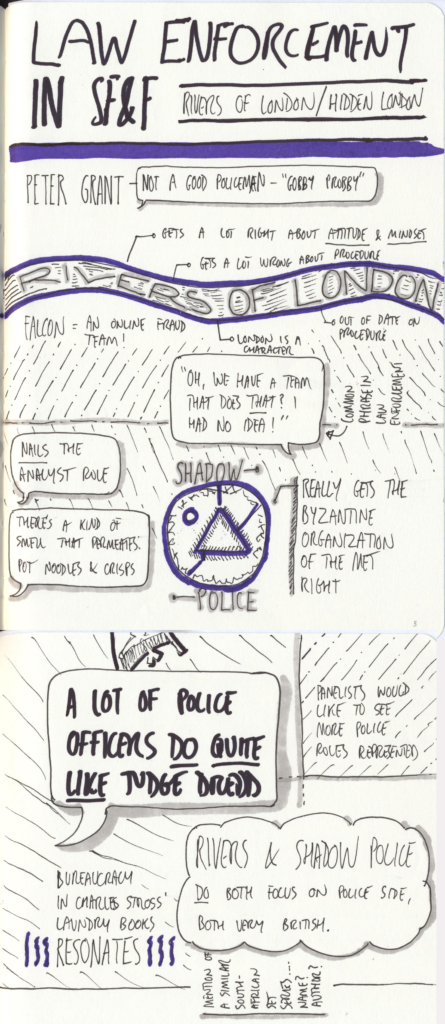 LAW ENFORCEMENT
IN SF&F
RIVERS OF LONDON/HIDDEN LONDON
PETER GRANT
NOT A GOOD POLICEMAN - "GOBBY PROBBY"
GETS A LOT RIGHT ABOUT ATTITUDE & MINDSET
GETS A LOT WRONG ABOUT PROCEDURE
RIVERS OF LONDON
FALCON = AN ONLINE FRAUD
TEAM!
LONDON IS A
CHARACTER
OUT OF DATE ON
PROCEDURE
"OH, WE HAVE A TEAM
THAT DOES THAT? I
HAD NO IDEA!"
COMMON
PHRASE IN
LAW
ENFORCEMENT
NAILS THE
ANALYST ROLE
THERE'S A KIND OF
SMELL THAT PERMEATES.
POT NOODLES & CRISPS
SHADOW
POLICE
REALLY GETS THE
BYZANTINE
ORGANIZATION
OF THE MET
RIGHT
A LOT OF POLICE
OFFICERS DO QUITE
LIKE JUDGE DREDD
PANELISTS WOULD
LIKE TO SEE
MORE POLICE
ROLES REPRESENTED
RIVERS & SHADOW POLICE
DO BOTH FOCUS ON POLICE SIDE,
BOTH VERY BRITISH.
BUREAUCRACY
IN CHARLES STROSS'
LAUNDRY BOOKS
RESONATES
MENTION OF
A SIMILAR
SOUTH-
AFRICAN
SET
SERIES...
NAME?
AUTHOR?